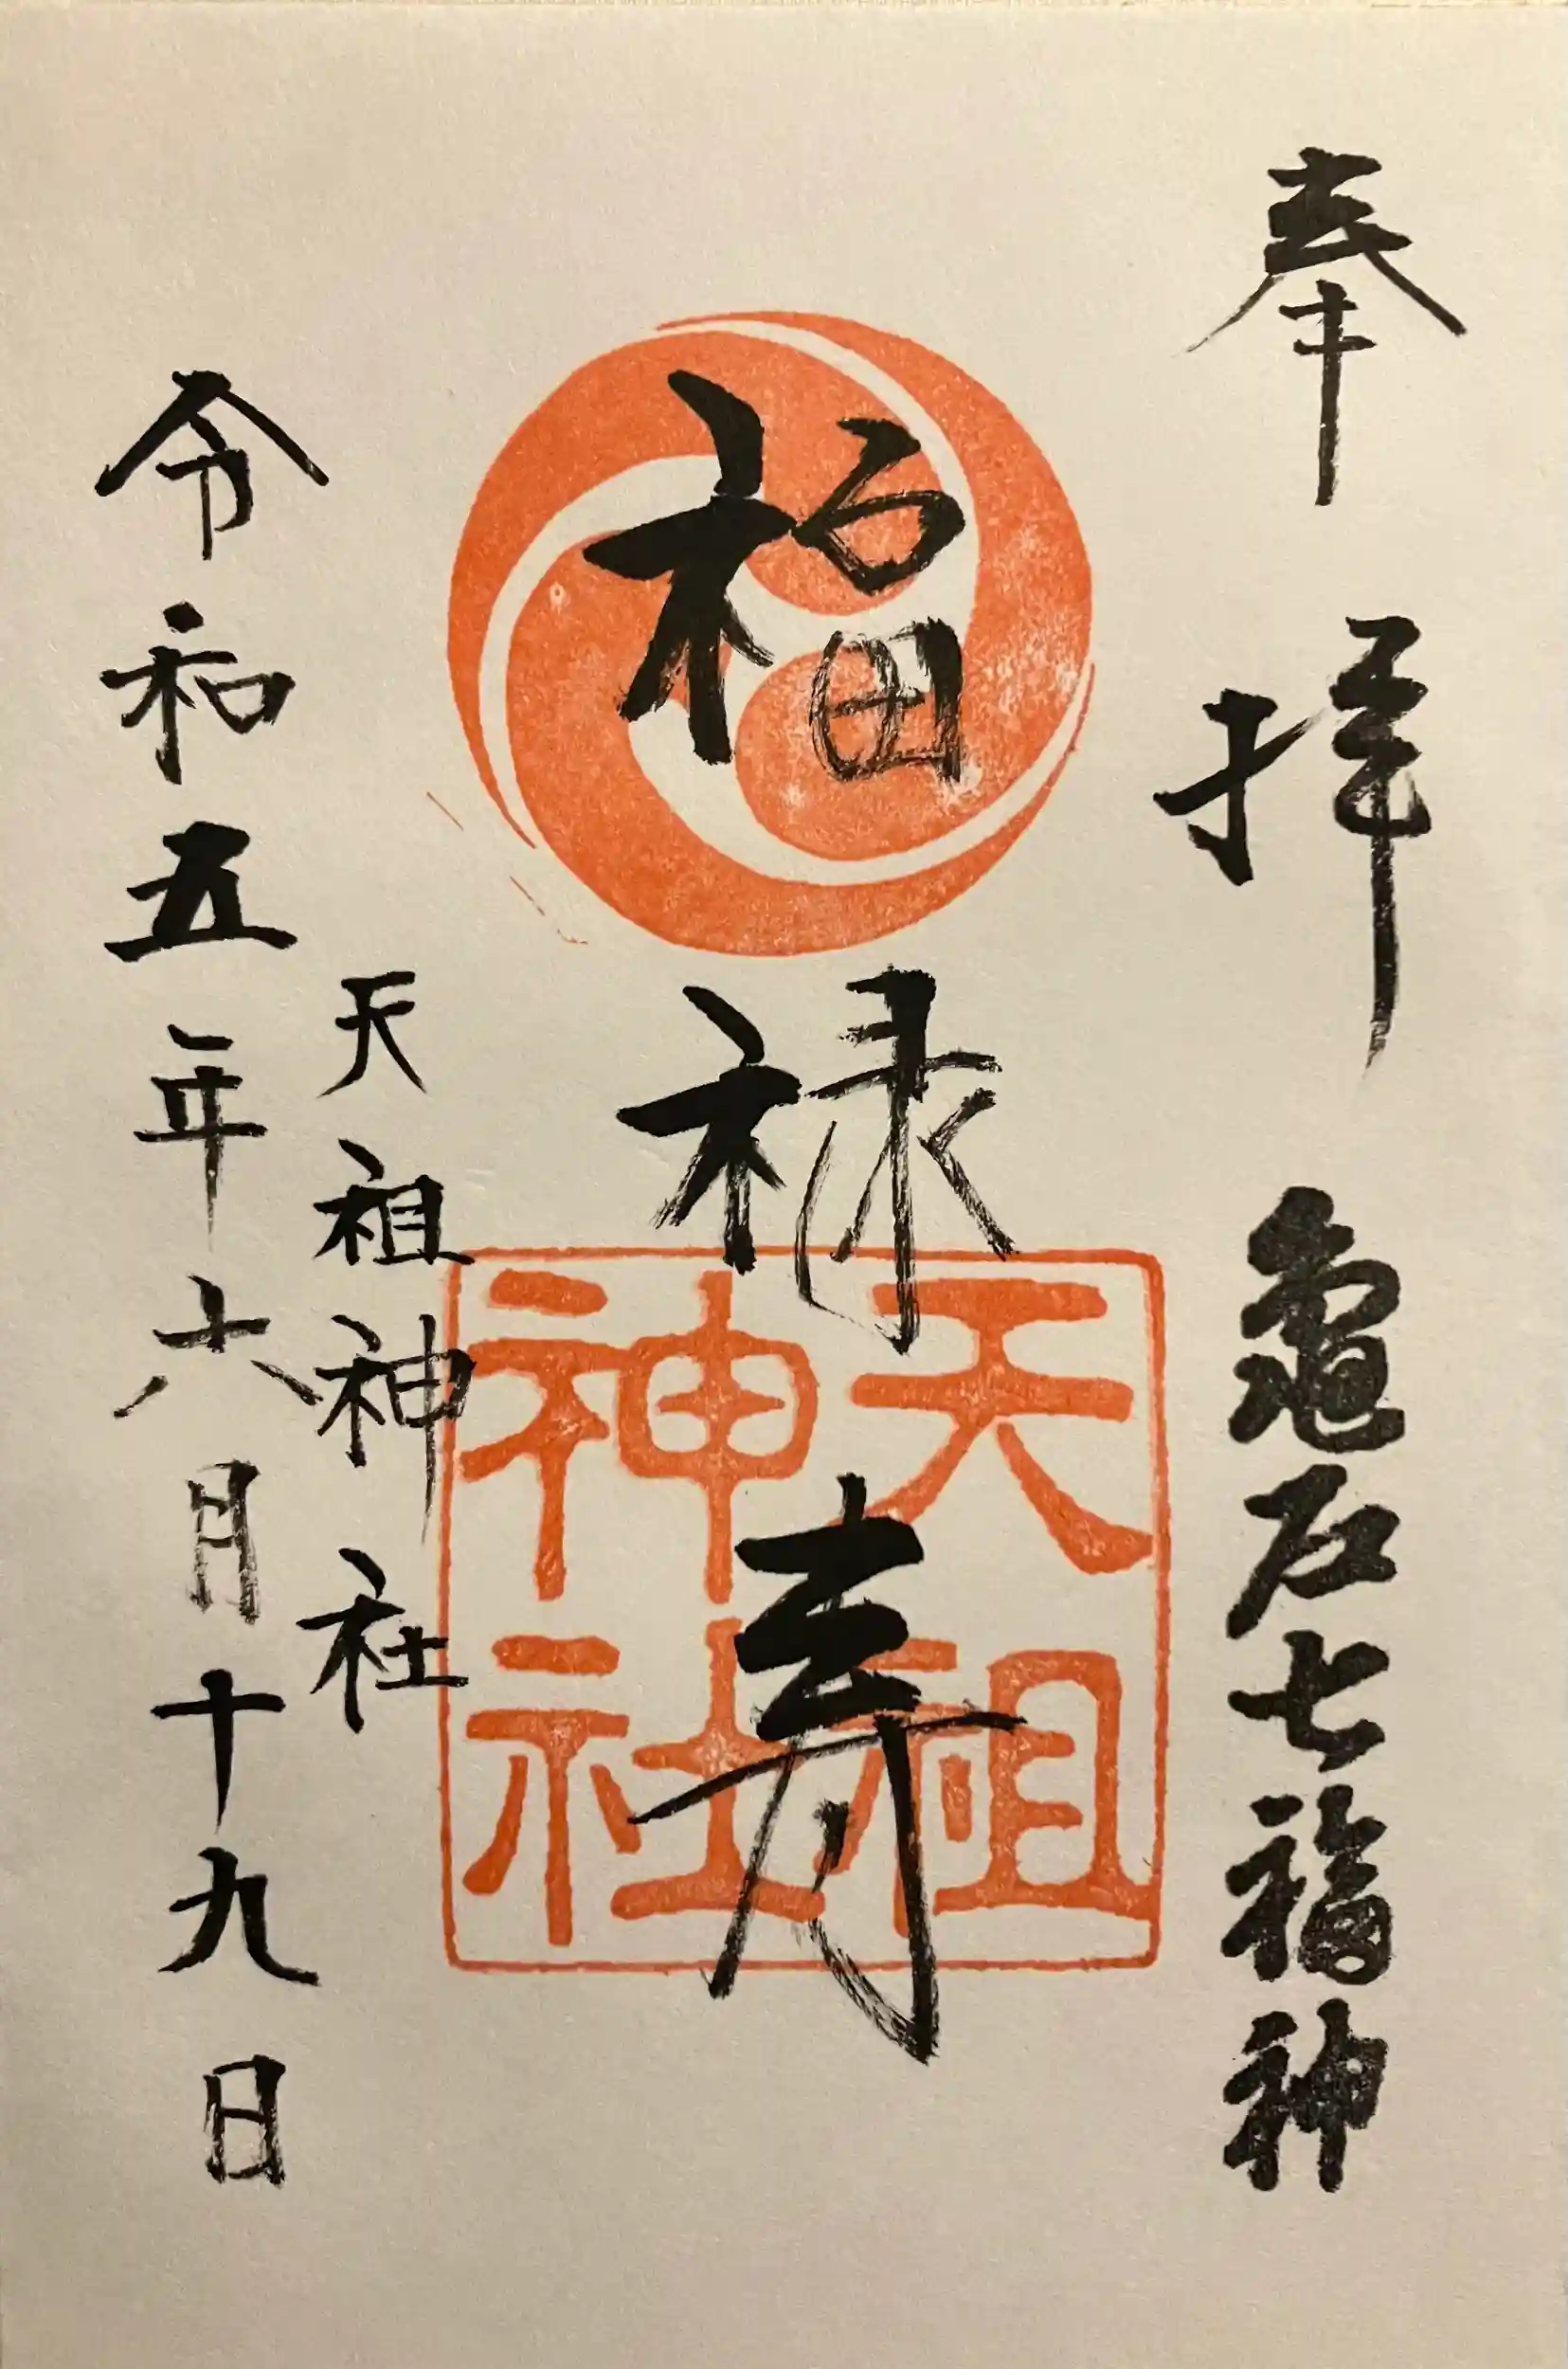 奉拝
亀戸七福神
福禄寿
天祖神社
天祖神社
令和五年六月十九日